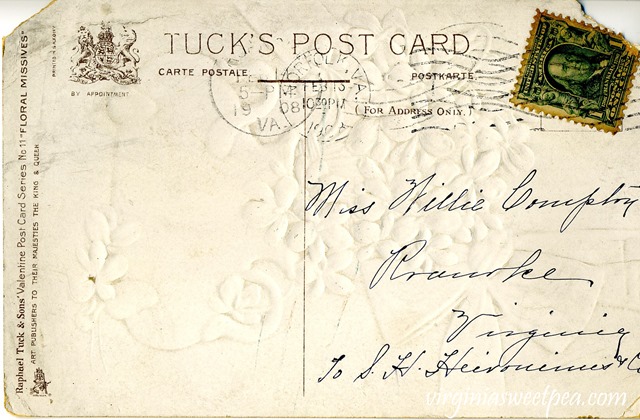 TUCK'S POST CARD
CARTE POSTALE.
POSTKARTE
BY APPOINTMENT.
(FOR ADDRESS ONLY.)
5-PM
19 08
VA.
NORFOLK, VA.
FEB 13
1030PM
Raphael Tuck & Sons' Valentine Post Card Series No 11 "FLORAL MISSIVES"
ART PUBLISHERS TO THEIR MAJESTIES THE KING & QUEEN
PRINTED IN SAXONY
Miss Willie Compton
Roanoke
Virginia
To S. H. Heironimus & Co
virginiasweetpea.com